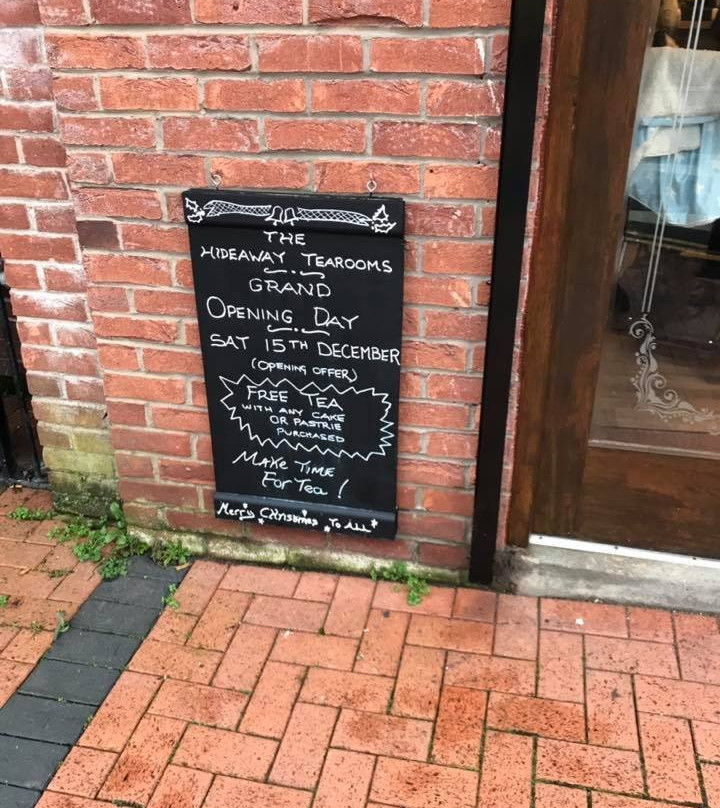 THE
HIDEAWAY TEAROOMS
GRAND
OPENING DAY
SAT 15TH DECEMBER
(OPENING OFFER)
FREE TEA
WITH ANY CAKE
OR PASTRIE
PURCHASED
MAKE TIME
FOR Tea !
Merry Christmas To ALL